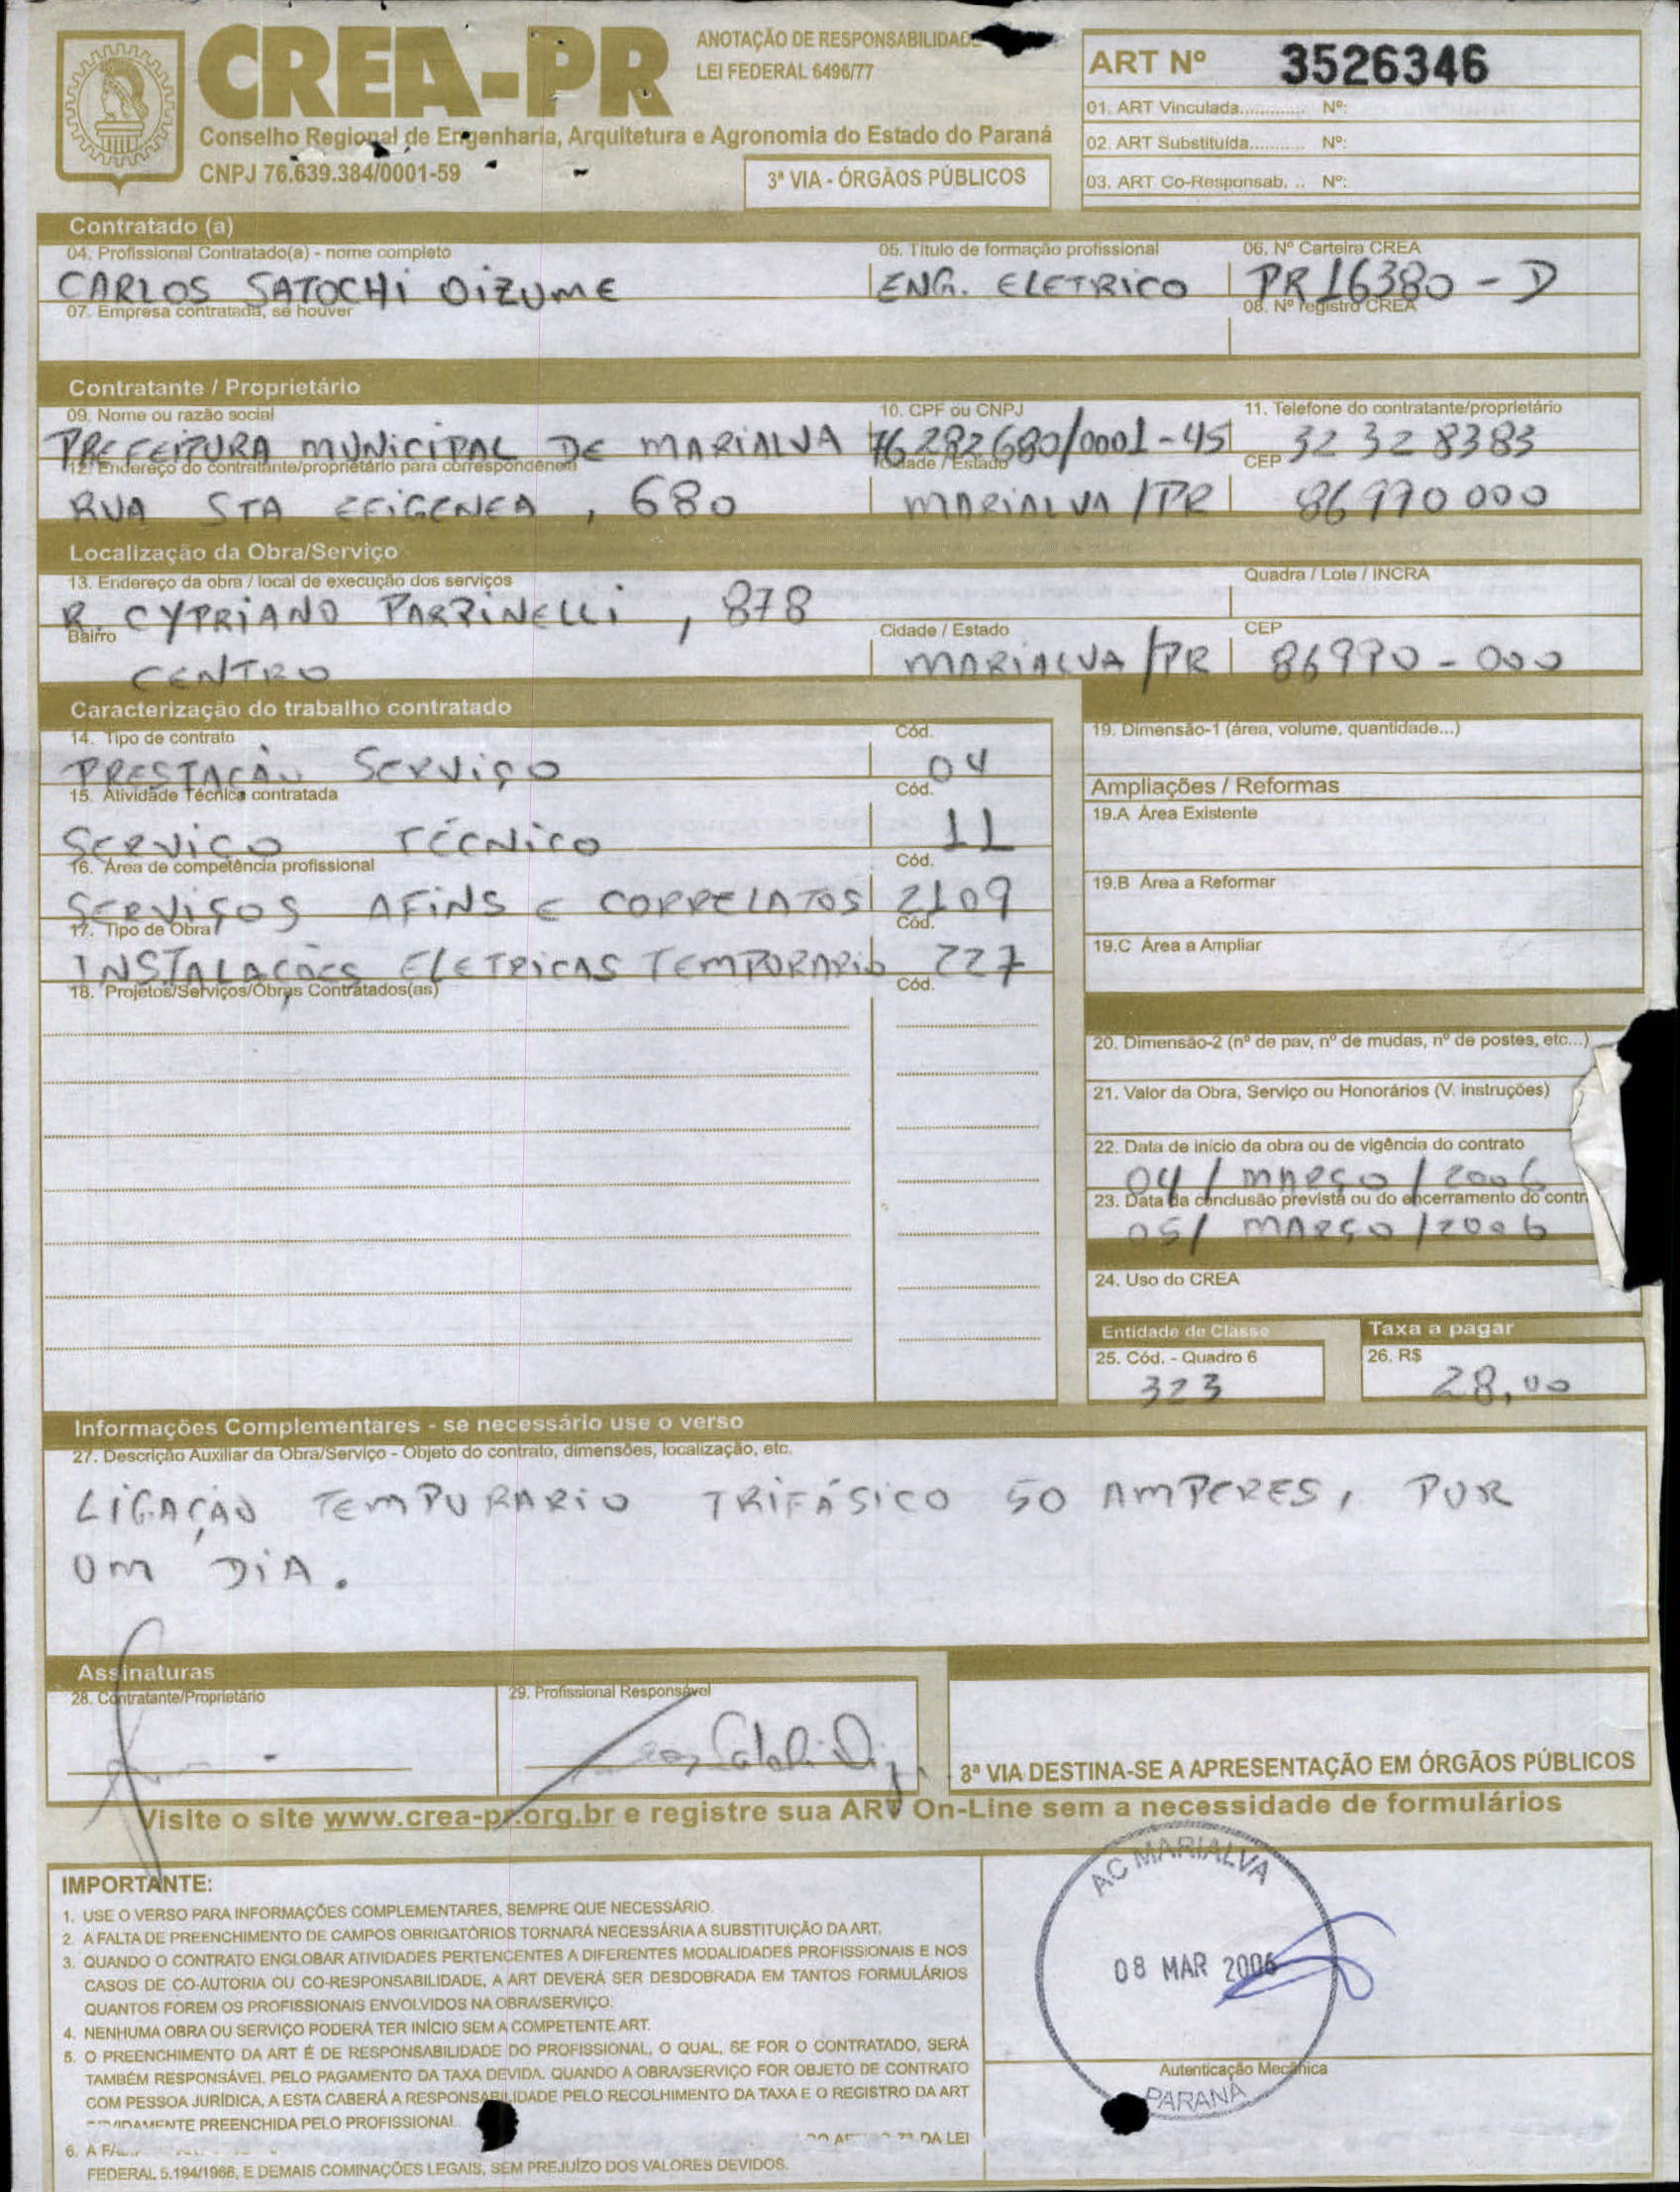 CREA-PR
ANOTAÇÃO DE RESPONSABILIDADE
LEI FEDERAL 6496/77
Conselho Regional de Engenharia, Arquitetura e Agronomia do Estado do Paraná
CNPJ 76.639.384/0001-59
3ª VIA - ÓRGÃOS PÚBLICOS
ART Nº 3526346
01. ART Vinculada............. Nº:
02. ART Substituída........... Nº:
03. ART Co-Responsab. .. Nº:
Contratado (a)
04. Profissional Contratado(a) - nome completo 05. Título de formação profissional 06. Nº Carteira CREA
CARLOS SATOCHI OIZUME ENG. ELETRICO PR 16380 - D
07. Empresa contratada, se houver 08. Nº registro CREA
Contratante / Proprietário
09. Nome ou razão social 10. CPF ou CNPJ 11. Telefone do contratante/proprietário
PREFEITURA MUNICIPAL DE MARIALVA 76 282680/0001-45 32 32 8383
12. Endereço do contratante/proprietário para correspondência Cidade / Estado CEP
RUA STA EFIGENEA , 680 MARIALVA /PR 86990 000
Localização da Obra/Serviço
13. Endereço da obra / local de execução dos serviços Quadra / Lote / INCRA
R. CYPRIANO PARPINELLI , 878
Bairro Cidade / Estado CEP
CENTRO MARIALVA /PR 86990 - 000
Caracterização do trabalho contratado
14. Tipo de contrato Cód.
PRESTAÇÃO SERVIÇO 04
15. Atividade Técnica contratada Cód.
SERVIÇO TÉCNICO 11
16. Área de competência profissional Cód.
SERVIÇOS AFINS E CORRELATOS 2109
17. Tipo de Obra Cód.
INSTALAÇÕES ELETRICAS TEMPORARIO 227
18. Projetos/Serviços/Obras Contratados(as) Cód.
19. Dimensão-1 (área, volume, quantidade...)
Ampliações / Reformas
19.A Área Existente
19.B Área a Reformar
19.C Área a Ampliar
20. Dimensão-2 (nº de pav, nº de mudas, nº de postes, etc...)
21. Valor da Obra, Serviço ou Honorários (V. instruções)
22. Data de início da obra ou de vigência do contrato
04 / MARÇO / 2006
23. Data da conclusão prevista ou do encerramento do contr
05 / MARÇO / 2006
24. Uso do CREA
Entidade de Classe Taxa a pagar
25. Cód. - Quadro 6 26. R$
323 28,00
Informações Complementares - se necessário use o verso
27. Descrição Auxiliar da Obra/Serviço - Objeto do contrato, dimensões, localização, etc.
LIGAÇÃO TEMPORARIO TRIFÁSICO 50 AMPERES, POR
UM DIA.
Assinaturas
28. Contratante/Proprietário 29. Profissional Responsável
3ª VIA DESTINA-SE A APRESENTAÇÃO EM ÓRGÃOS PÚBLICOS
Visite o site www.crea-pr.org.br e registre sua ART On-Line sem a necessidade de formulários
IMPORTANTE:
1. USE O VERSO PARA INFORMAÇÕES COMPLEMENTARES, SEMPRE QUE NECESSÁRIO.
2. A FALTA DE PREENCHIMENTO DE CAMPOS OBRIGATÓRIOS TORNARÁ NECESSÁRIA A SUBSTITUIÇÃO DA ART.
3. QUANDO O CONTRATO ENGLOBAR ATIVIDADES PERTENCENTES A DIFERENTES MODALIDADES PROFISSIONAIS E NOS
CASOS DE CO-AUTORIA OU CO-RESPONSABILIDADE, A ART DEVERÁ SER DESDOBRADA EM TANTOS FORMULÁRIOS
QUANTOS FOREM OS PROFISSIONAIS ENVOLVIDOS NA OBRA/SERVIÇO.
4. NENHUMA OBRA OU SERVIÇO PODERÁ TER INÍCIO SEM A COMPETENTE ART.
5. O PREENCHIMENTO DA ART É DE RESPONSABILIDADE DO PROFISSIONAL, O QUAL, SE FOR O CONTRATADO, SERÁ
TAMBÉM RESPONSÁVEL PELO PAGAMENTO DA TAXA DEVIDA. QUANDO A OBRA/SERVIÇO FOR OBJETO DE CONTRATO
COM PESSOA JURÍDICA, A ESTA CABERÁ A RESPONSABILIDADE PELO RECOLHIMENTO DA TAXA E O REGISTRO DA ART
PREENCHIDA PELO PROFISSIONAL
6. A DA LEI
FEDERAL 5.194/1966, E DEMAIS COMINAÇÕES LEGAIS, SEM PREJUÍZO DOS VALORES DEVIDOS.
AC MARIALVA
08 MAR 2006
Autenticação Mecânica
PARANÁ